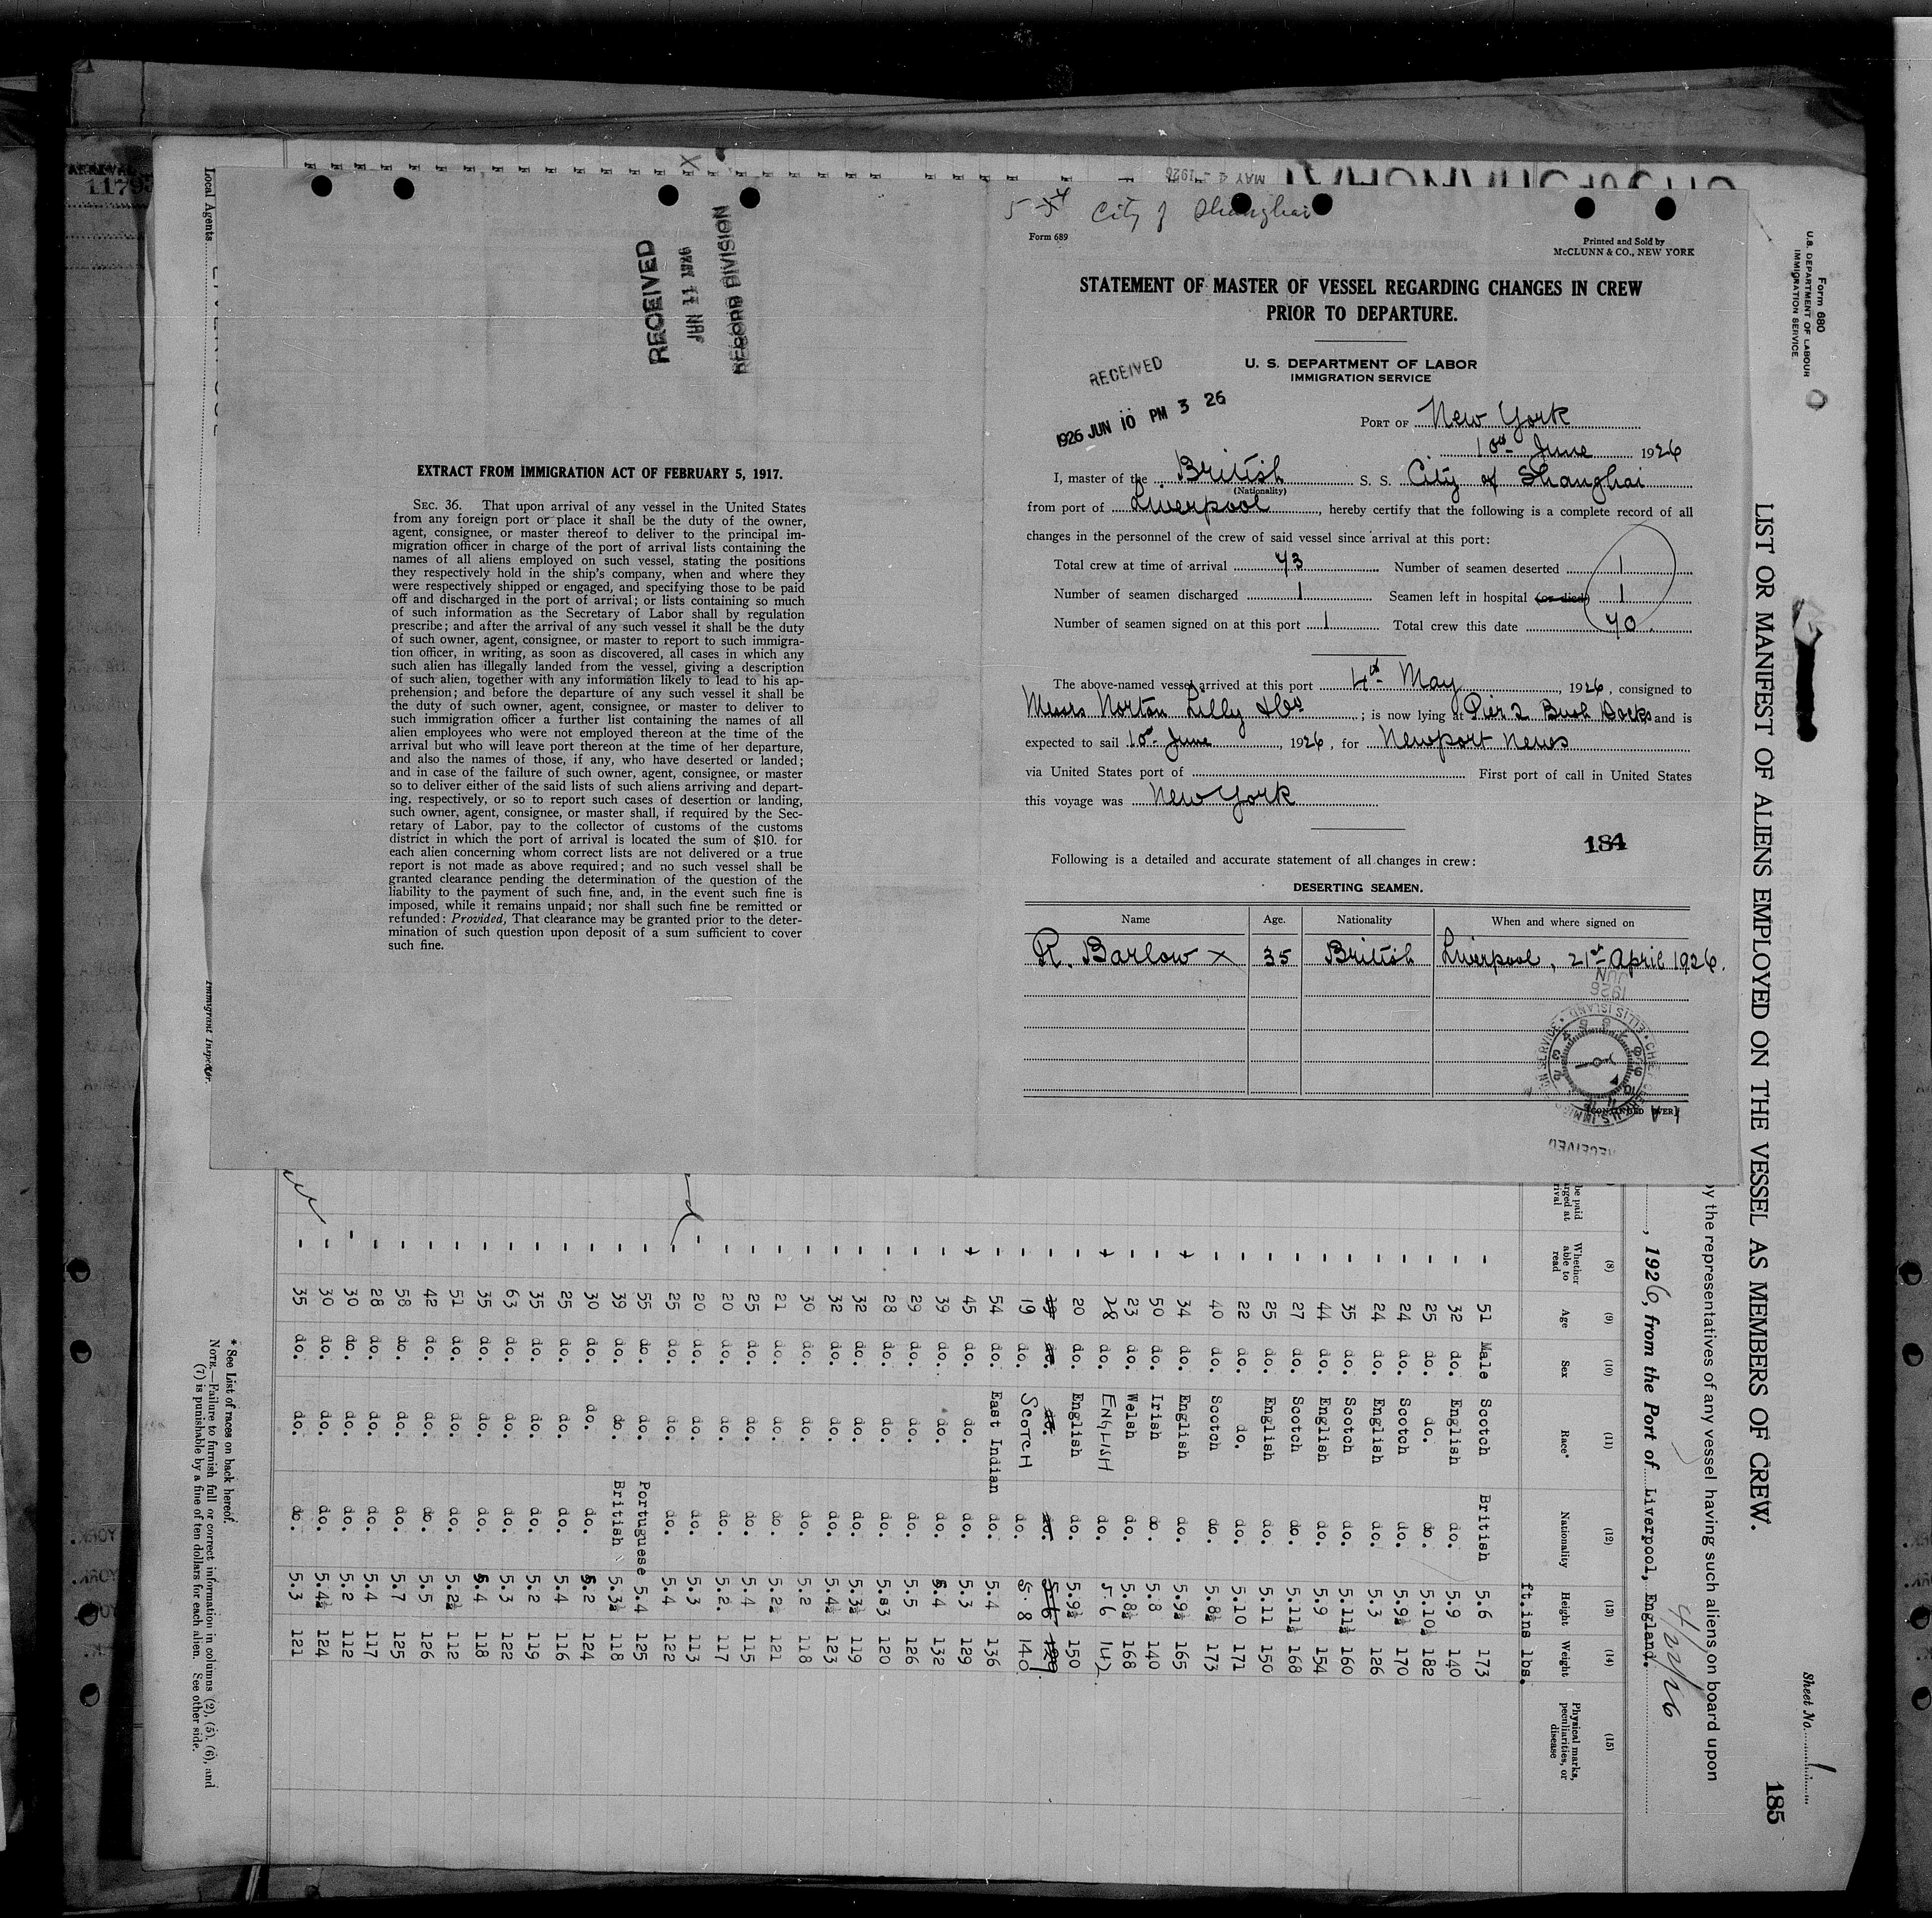 5-4 City of Shanghai
Form 689
Printed and Sold by
McCLUNN & CO., NEW YORK
STATEMENT OF MASTER OF VESSEL REGARDING CHANGES IN CREW
PRIOR TO DEPARTURE.
U. S. DEPARTMENT OF LABOR
IMMIGRATION SERVICE
RECEIVED
1926 JUN 10 PM 3 26
PORT OF New York
10th June 1926
I, master of the British S. S. City of Shanghai
(Nationality)
from port of Liverpool, hereby certify that the following is a complete record of all
changes in the personnel of the crew of said vessel since arrival at this port:
Total crew at time of arrival 73 Number of seamen deserted 1
Number of seamen discharged 1 Seamen left in hospital (or died) 1
Number of seamen signed on at this port 1 Total crew this date 70
The above-named vessel arrived at this port 4th May, 1926, consigned to
Messrs Norton Lilly & Co; is now lying at Pier 2 Bush Docks and is
expected to sail 10th June, 1926, for Newport News
via United States port of First port of call in United States
this voyage was New York
184
Following is a detailed and accurate statement of all changes in crew:
DESERTING SEAMEN.
Name Age. Nationality When and where signed on
R. Barlow x 35 British Liverpool, 21st April 1926.
RECEIVED
JUN 11 1926
RECORD DIVISION
EXTRACT FROM IMMIGRATION ACT OF FEBRUARY 5, 1917.
SEC. 36. That upon arrival of any vessel in the United States
from any foreign port or place it shall be the duty of the owner,
agent, consignee, or master thereof to deliver to the principal im-
migration officer in charge of the port of arrival lists containing the
names of all aliens employed on such vessel, stating the positions
they respectively hold in the ship's company, when and where they
were respectively shipped or engaged, and specifying those to be paid
off and discharged in the port of arrival; or lists containing so much
of such information as the Secretary of Labor shall by regulation
prescribe; and after the arrival of any such vessel it shall be the duty
of such owner, agent, consignee, or master to report to such immigra-
tion officer, in writing, as soon as discovered, all cases in which any
such alien has illegally landed from the vessel, giving a description
of such alien, together with any information likely to lead to his ap-
prehension; and before the departure of any such vessel it shall be
the duty of such owner, agent, consignee, or master to deliver to
such immigration officer a further list containing the names of all
alien employees who were not employed thereon at the time of the
arrival but who will leave port thereon at the time of her departure,
and also the names of those, if any, who have deserted or landed;
and in case of the failure of such owner, agent, consignee, or master
so to deliver either of the said lists of such aliens arriving and depart-
ing, respectively, or so to report such cases of desertion or landing,
such owner, agent, consignee, or master shall, if required by the Sec-
retary of Labor, pay to the collector of customs of the customs
district in which the port of arrival is located the sum of $10. for
each alien concerning whom correct lists are not delivered or a true
report is not made as above required; and no such vessel shall be
granted clearance pending the determination of the question of the
liability to the payment of such fine, and, in the event such fine is
imposed, while it remains unpaid; nor shall such fine be remitted or
refunded: Provided, That clearance may be granted prior to the deter-
mination of such question upon deposit of a sum sufficient to cover
such fine.
Form 680
U.S. DEPARTMENT OF LABOUR
IMMIGRATION SERVICE
Sheet No. 1
185
LIST OR MANIFEST OF ALIENS EMPLOYED ON THE VESSEL AS MEMBERS OF CREW.
by the representatives of any vessel having such aliens on board upon
4/22/26
, 1926, from the Port of Liverpool, England.
(8) (9) (10) (11) (12) (13) (14) (15)
Whether able to read Age Sex Race* Nationality Height Weight Physical marks, peculiarities, or disease
ft.ins lbs.
- 51 Male Scotch British 5.6 173
- 32 do. English do. 5.9 140
- 25 do. do. do. 5.10½ 182
- 24 do. Scotch do. 5.9½ 170
- 24 do. English do. 5.3 126
- 35 do. Scotch do. 5.11½ 160
- 44 do. English do. 5.9 154
- 27 do. Scotch do. 5.11½ 168
- 25 do. English do. 5.11 150
- 22 do. do. do. 5.10 171
- 40 do. Scotch do. 5.8½ 173
- 34 do. English do. 5.9½ 165
- 50 do. Irish do. 5.8 140
- 23 do. Welsh do. 5.8½ 168
- 28 do. ENGLISH do. 5.6 142
- 20 do. English do. 5.9½ 150
- 19 do. do. do. 5.6 129
- 19 do. SCOTCH do. 5.8 140
- 54 do. East Indian do. 5.4 136
- 45 do. do. do. 5.3 129
- 39 do. do. do. 5.4 132
- 29 do. do. do. 5.5 126
- 28 do. do. do. 5.3 120
- 32 do. do. do. 5.3½ 119
- 32 do. do. do. 5.4½ 123
- 30 do. do. do. 5.2 118
- 21 do. do. do. 5.2½ 121
- 25 do. do. do. 5.4 115
- 20 do. do. do. 5.2. 117
- 20 do. do. do. 5.3 113
- 25 do. do. do. 5.4 122
- 55 do. do. Portuguese 5.4 125
- 39 do. do. British 5.3½ 118
- 30 do. do. do. 5.2 124
- 25 do. do. do. 5.4 116
- 35 do. do. do. 5.2 119
- 63 do. do. do. 5.3 122
- 35 do. do. do. 5.4 118
- 51 do. do. do. 5.2½ 112
- 42 do. do. do. 5.5 126
- 58 do. do. do. 5.7 125
- 28 do. do. do. 5.4 117
- 30 do. do. do. 5.2 112
- 30 do. do. do. 5.4½ 124
- 35 do. do. do. 5.3 121
* See List of races on back hereof.
NOTE.—Failure to furnish full or correct information in columns (2), (5), (6), and
(7) is punishable by a fine of ten dollars for each alien. See other side.
Local Agents
Immigrant Inspector.